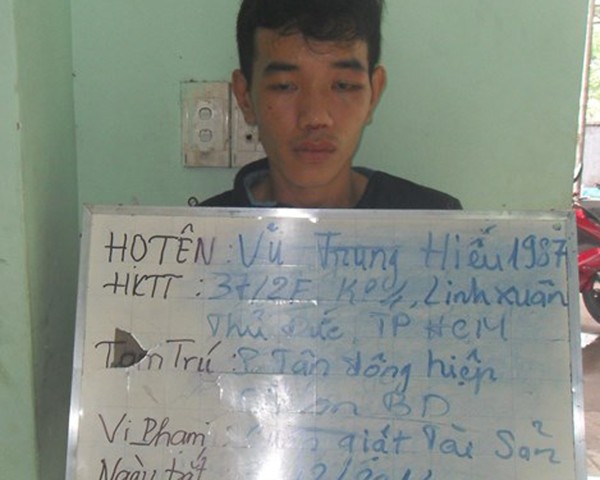 HỌ TÊN : Vũ Trung Hiếu 1987
HKTT : 37/2F, KP4, Linh xuân
Thủ Đức, TP HCM
Tạm Trú : P Tân đông hiệp
BD
Vi Phạm : giật Tài Sản
Ngày bắt